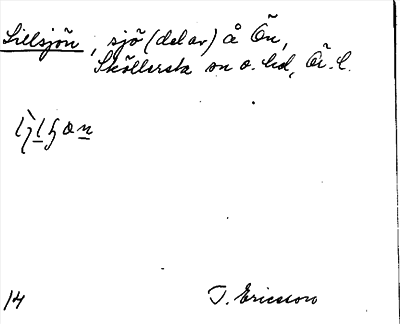 Lillsjön, sjö (del av) å Ön,
Sköllersta sn o. hd, Ör. l.
14 T. Ericsson